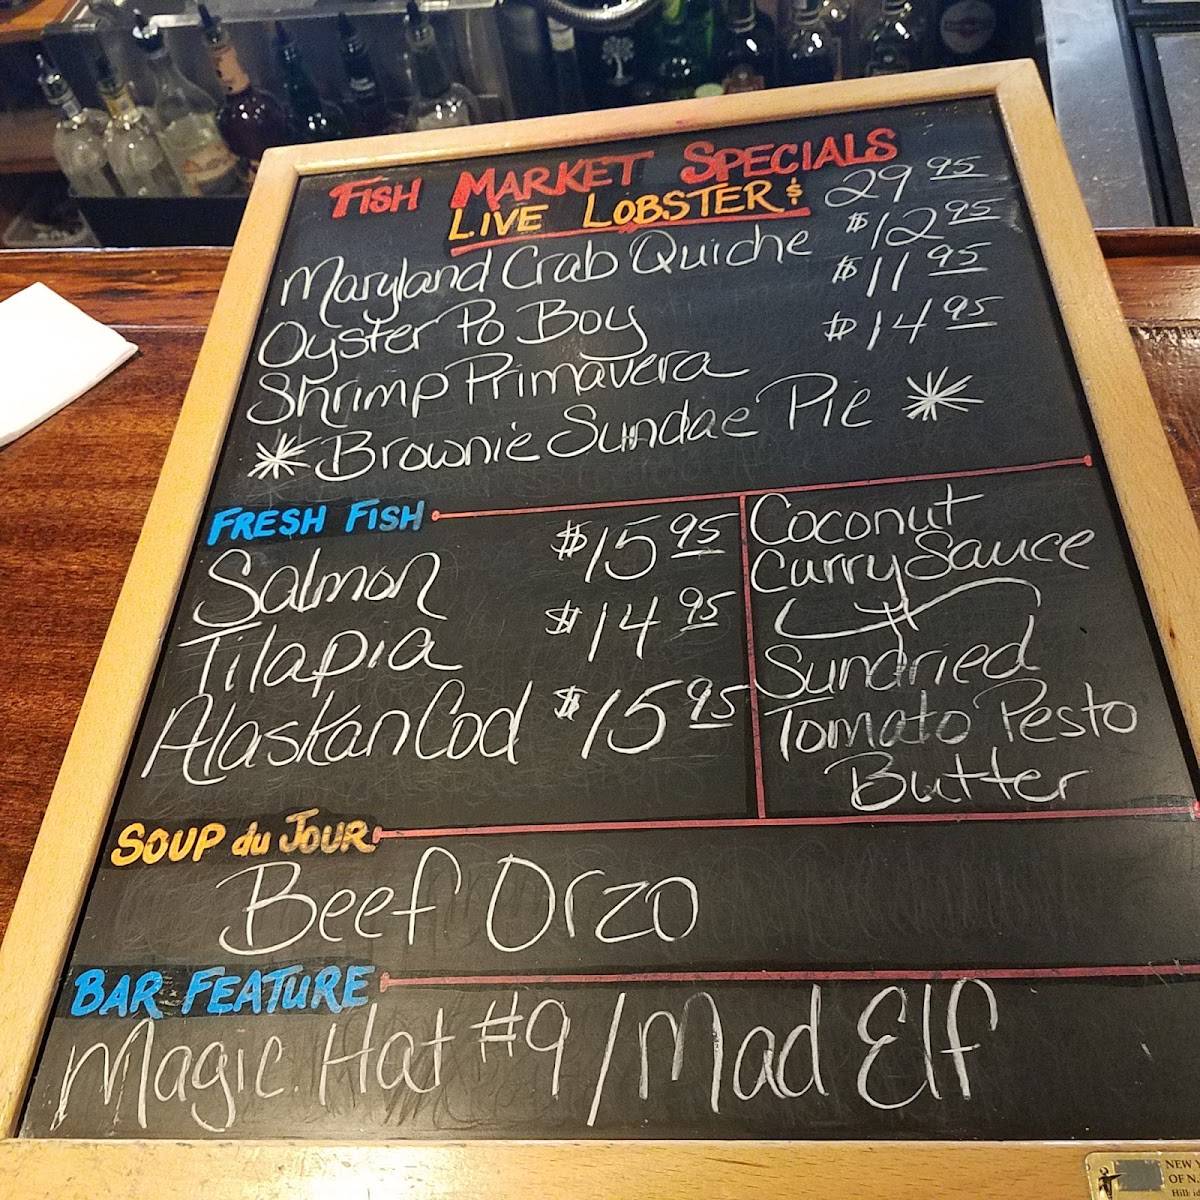 FISH MARKET SPECIALS
LIVE LOBSTER: $ 29 95
Maryland Crab Quiche $12 95
Oyster Po Boy $11 95
Shrimp Primavera $14 95
Brownie Sundae Pie
FRESH FISH
Salmon $15 95
Tilapia $14 95
Alaskan Cod $15 95
Coconut
Curry Sauce
Sundried
Tomato Pesto
Butter
SOUP du JOUR
Beef Orzo
BAR FEATURE
Magic Hat #9 / Mad Elf
NEW
OF N